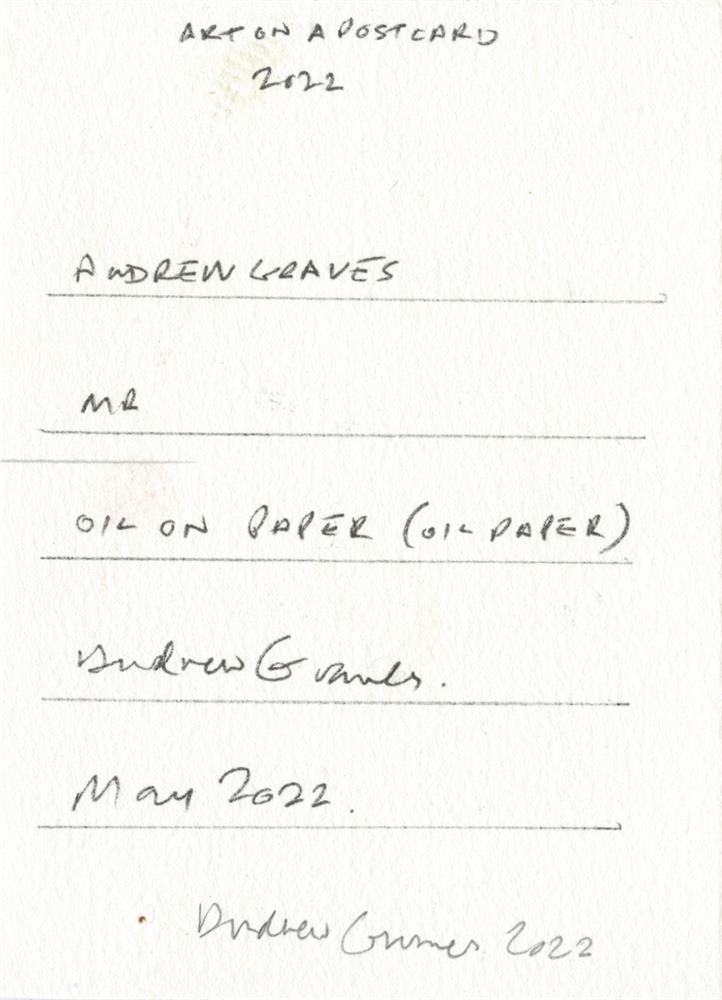 ART ON A POSTCARD
2022
ANDREW GRAVES
MR
OIL ON PAPER (OIL PAPER)
Andrew Graves.
May 2022.
Andrew Graves 2022